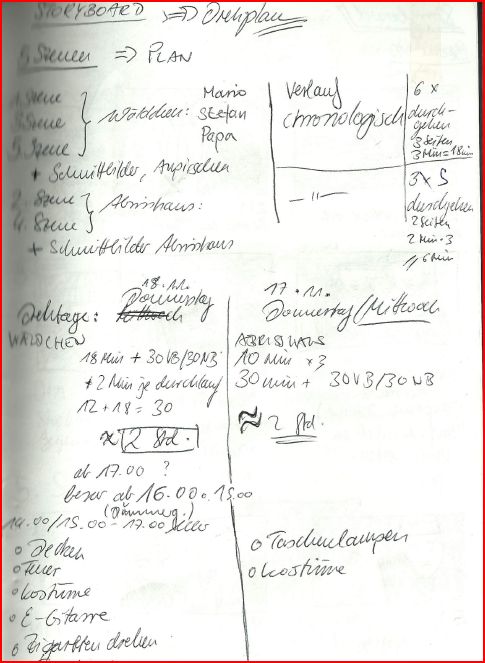 STORYBOARD => Drehplan
5 Szenen => PLAN
1. Szene
3. Szene
5. Szene
Wäldchen:
Mario
Stefan
Papa
Verlauf
chronologisch
6 x
durch-
gehen
3 Seiten
3 Min = 18 min
+ Schnittbilder, Anpirschen
2. Szene
4. Szene
Abrisshaus:
— 11 —
3 x S
durchgehen
2 Seiten
2 Min · 3
6 Min
+ Schnittbilder Abrisshaus
Drehtage:
18.11.
Donnerstag
17.11.
Donnerstag/Mittwoch
WÄLDCHEN
18 Min + 30 VB/30 NB
+ 2 Min je durchlauf
12 + 18 = 30
≈ 2 Std.
ab 17.00 ?
besser ab 16.00 o. 15.00
(Dämmerg.)
14.00/15.00 - 17.00
o Decken
o Feuer
o Kostüme
o E-Gitarre
o Zigaretten drehen
ABRISSHAUS
10 Min x 3
30 min + 30 VB/30 NB
≈ 2 Std.
o Taschenlampen
o Kostüme